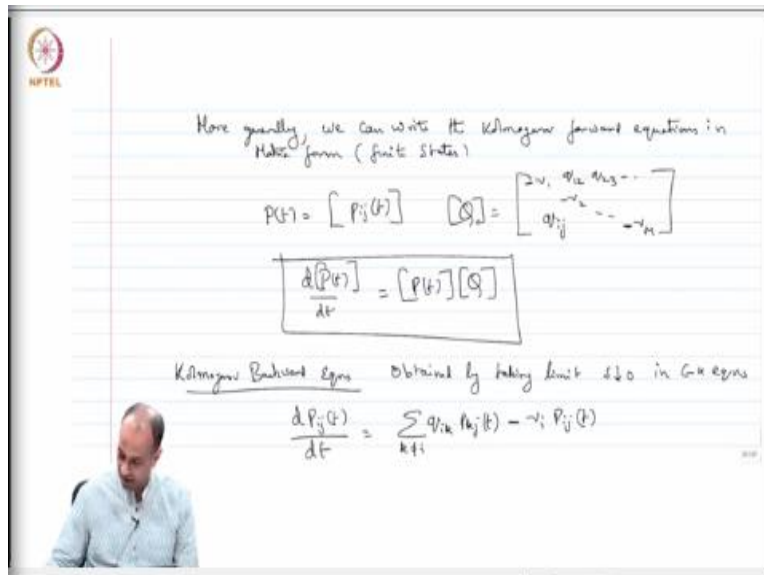 NPTEL
More generally, we can write the Kolmogorov forward equations in
Matrix form (finite states)
P(t) = [Pij(t)] [Q] = [-ν1 q12 q23 ... -ν2 qij ... -νM]
d[P(t)]/dt = [P(t)][Q]
Kolmogorov Backward Eqns Obtained by taking limit s↓0 in C-K eqns
dPij(t)/dt = Σk≠i qik Pkj(t) - νi Pij(t)